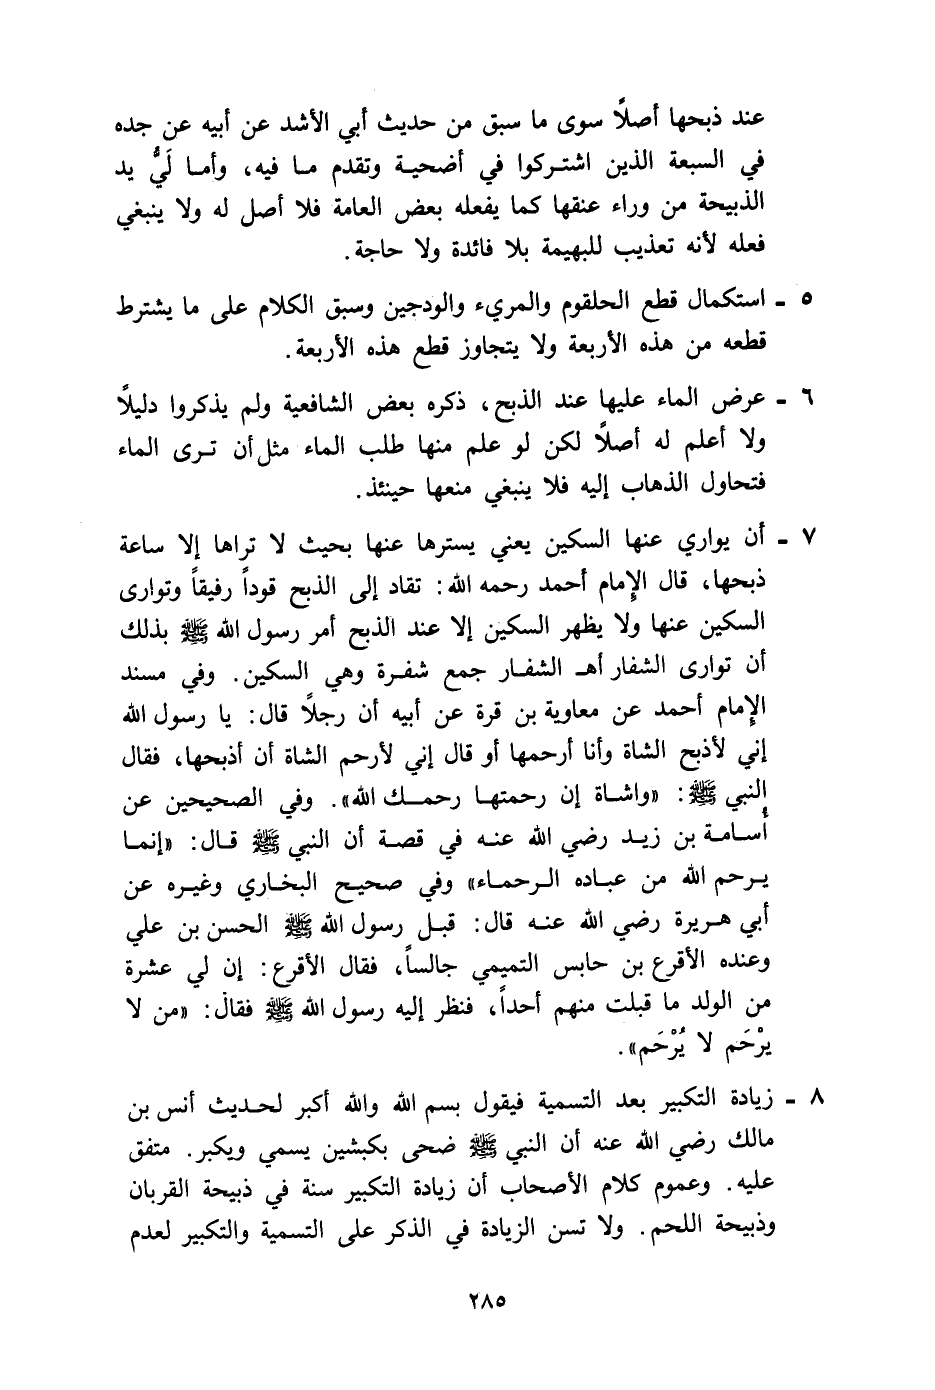 عند ذبحها أصلاً سوى ما سبق من حديث أبي الأشد عن أبيه عن جده
في السبعة الذين اشتركوا في أضحية وتقدم ما فيه، وأما لَيُّ يد
الذبيحة من وراء عنقها كما يفعله بعض العامة فلا أصل له ولا ينبغي
فعله لأنه تعذيب للبهيمة بلا فائدة ولا حاجة.
٥ ـ استكمال قطع الحلقوم والمريء والودجين وسبق الكلام على ما يشترط
قطعه من هذه الأربعة ولا يتجاوز قطع هذه الأربعة.
٦ ـ عرض الماء عليها عند الذبح، ذكره بعض الشافعية ولم يذكروا دليلاً
ولا أعلم له أصلاً لكن لو علم منها طلب الماء مثل أن ترى الماء
فتحاول الذهاب إليه فلا ينبغي منعها حينئذ.
٧ ـ أن يواري عنها السكين يعني يسترها عنها بحيث لا تراها إلا ساعة
ذبحها، قال الإمام أحمد رحمه الله: تقاد إلى الذبح قوداً رفيقاً وتوارى
السكين عنها ولا يظهر السكين إلا عند الذبح أمر رسول الله ﷺ بذلك
أن توارى الشفار أهـ الشفار جمع شفرة وهي السكين. وفي مسند
الإمام أحمد عن معاوية بن قرة عن أبيه أن رجلاً قال: يا رسول الله
إني لأذبح الشاة وأنا أرحمها أو قال إني لأرحم الشاة أن أذبحها، فقال
النبي ﷺ: «واشاة إن رحمتها رحمك الله». وفي الصحيحين عن
أسامة بن زيد رضي الله عنه في قصة أن النبي ﷺ قال: «إنما
يرحم الله من عباده الرحماء» وفي صحيح البخاري وغيره عن
أبي هريرة رضي الله عنه قال: قبل رسول الله ﷺ الحسن بن علي
وعنده الأقرع بن حابس التميمي جالساً، فقال الأقرع: إن لي عشرة
من الولد ما قبلت منهم أحداً، فنظر إليه رسول الله ﷺ فقال: «من لا
يرْحَم لا يُرْحَم».
٨ ـ زيادة التكبير بعد التسمية فيقول بسم الله والله أكبر لحديث أنس بن
مالك رضي الله عنه أن النبي ﷺ ضحى بكبشين يسمي ويكبر. متفق
عليه. وعموم كلام الأصحاب أن زيادة التكبير سنة في ذبيحة القربان
وذبيحة اللحم. ولا تسن الزيادة في الذكر على التسمية والتكبير لعدم
٢٨٥